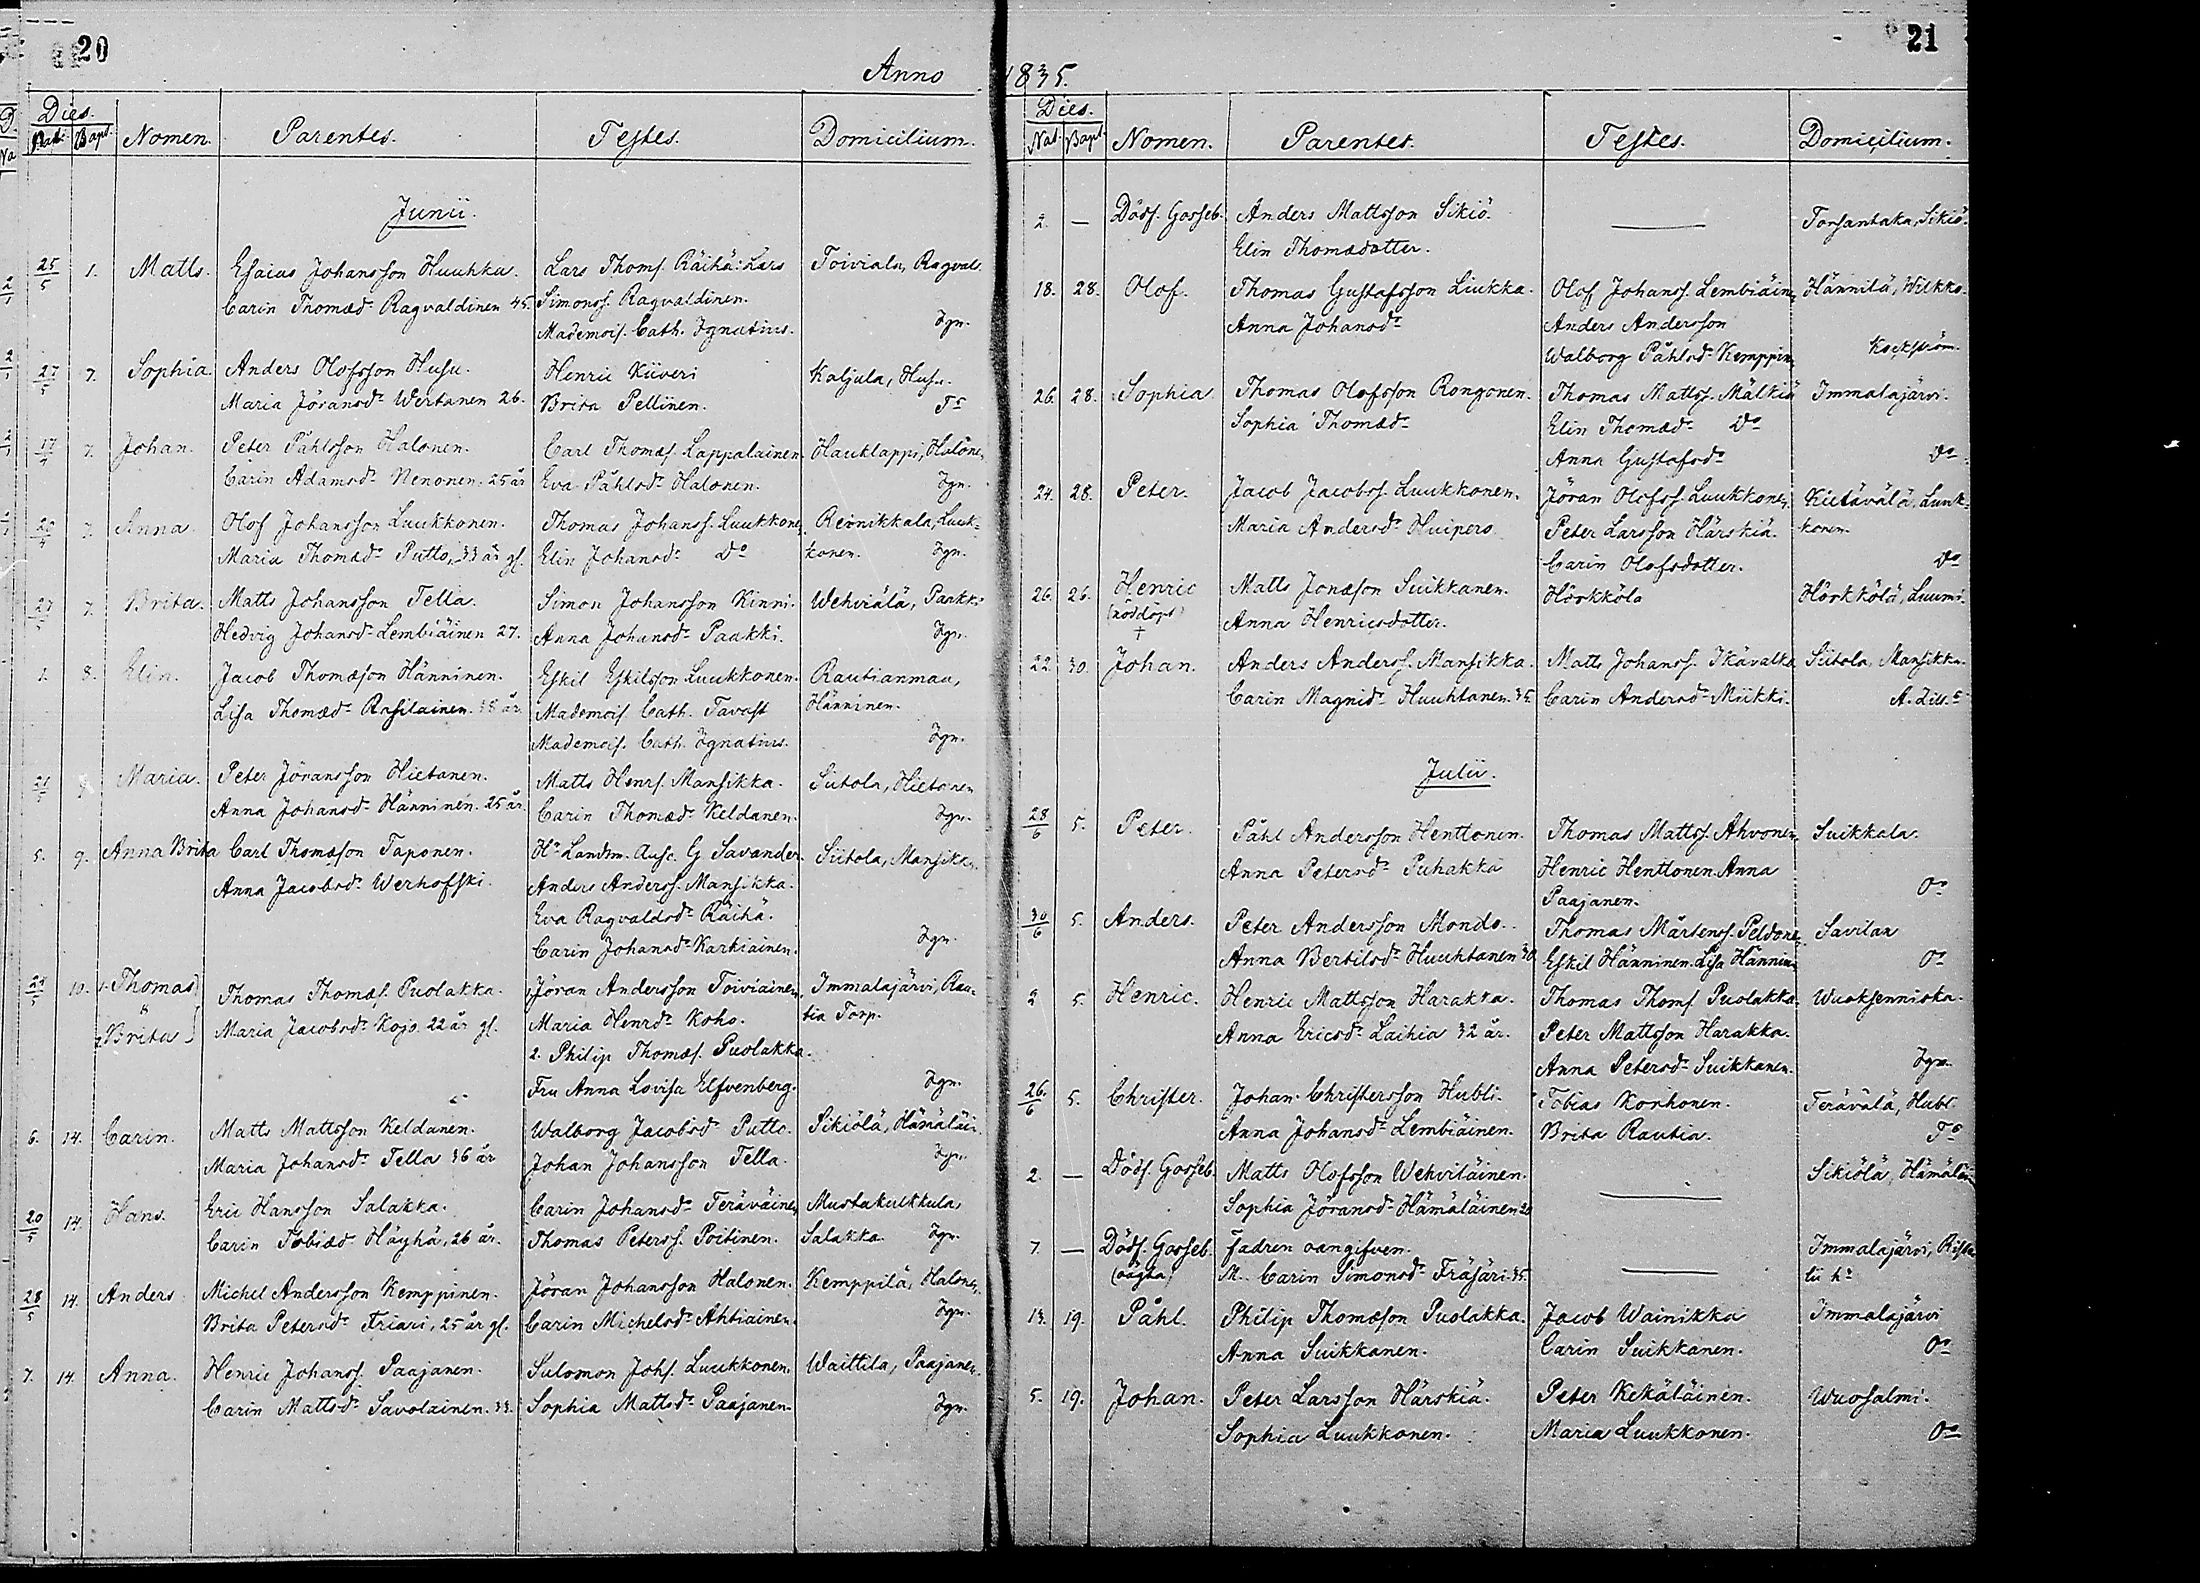 20
Anno
Dies.
Nat. Bapt. Nomen. Parentes. Testes. Domicilium.
Junii.
25/5 1. Matts. Esaias Johansson Huuhka. Lars Thoms. Räihä: Lars Toiviala, Ragval.
Carin Thomæd. Ragvaldinen 45. Simonss. Ragvaldinen.
Mademois. Cath. Ignatius. Ign.
27/5 7. Sophia Anders Olofsson Husu. Henric Kiiveri Kaljula, Husu.
Maria Jöransd. Wertanen 26. Brita Pellinen.
17/4 7. Johan. Peter Påhlsson Halonen. Carl Thomæs. Lappalainen Hauklappi, Halone,
Carin Adamsd. Nenonen. 25 år Eva Påhlsd. Halonen. Ign.
7. Anna. Olof Johansson Luukkonen. Thomas Johanss. Luukkone, Reinikkala, Luuk-
Maria Thomæd. Putto, 33 år gl. Elin Johansd. Do konen. Ign.
27/5 7. Brita. Matts Johansson Tella. Simon Johansson Kinni. Wehviälä, Paakki
Hedvig Johansd. Lembiäinen 27. Anna Johansd. Paakki. Ign.
1. 8. Elin. Jacob Thomæson Hänninen. Eskil Eskilsson Luukkonen. Rautianmaa,
Lisa Thomæd. Rasilainen. 38 år. Mademois. Cath. Tavast Hänninen.
Mademois. Cath. Ignatius. Ign.
Maria. Peter Jöransson Hietanen. Matts Henrs. Mansikka. Siitola, Hietonen
Anna Johansd. Hänninen. 25 år. Carin Thomæd. Keldanen. Ign.
5. 9. Anna Brita Carl Thomæson Taponen. Hr Landtm. Ausc. G Savander. Siitola, Mansikka.
Anna Jacobsd. Werhofski. Anders Anderss. Mansikka.
Eva Ragvaldsd. Räihä.
Carin Johansd. Karkiainen. Ign.
10. 1. Thomas Thomas Thomæs. Puolakka. Jöran Andersson Toiviainen, Immalajärvi, Rau-
Maria Jacobsd. Kojo. 22 år gl. Maria Henrsd. Koho. tia Torp.
2 Brita 2. Philip Thomæs. Puolakka.
Fru Anna Lovisa Elfvenberg. Ign.
6. 14. Carin. Matts Mattsson Keldanen. Walborg Jacobsd. Putto. Sikiölä, Hämäläi.
Maria Johansd. Tella 36 år Johan Johansson Tella. Ign.
20/5 14. Hans. Eric Hansson Salakka. Carin Johansd. Teräväinen Mustakulkkula,
Carin Tobiæd. Häyhä, 26 år. Thomas Peterss. Poitinen. Salakka. Ign.
28/5 14. Anders Michel Andersson Kemppinen. Jöran Johansson Halonen. Kemppilä, Halone,
Brita Petersd. Friari, 25 år gl. Carin Michelsd. Ahtiainen. Ign.
7. 14. Anna. Henric Johanss. Paajanen. Salomon Johs. Luukkonen. Waittila, Paajanen.
Carin Mattsd. Savolainen. 33. Sophia Mattsd. Paajanen. Ign.
21
1835.
Dies.
Nat. Bapt. Nomen. Parentes. Testes. Domicilium.
2. — Dödf. Gosseb. Anders Mattsson Sikiö. — Torsantaka, Sikiö.
Elin Thomædotter.
18. 28. Olof. Thomas Gustafsson Liukka. Olof Johanss. Lembiäine, Hännilä, Wilkko.
Anna Johansd. Anders Andersson
Walborg Påhlsd. Kemppin, Kockström.
26. 28. Sophia Thomas Olofsson Rongonen. Thomas Mattss. Mälkiä Immalajärvi.
Sophia Thomæd. Elin Thomæd. Do
Anna Gustafsd. Do
24. 28. Peter. Jacob Jacobss. Luukkonen. Jöran Olofss. Luukkone, Kiitävälä, Luuk-
Maria Andersd. Huipero Peter Larsson Härskiä. konen.
Carin Olofsdotter. Do
26. 26. Henric Matts Jonæson Suikkanen. Hörkkölä Hörkkölä, Luumi.
(nöddöpt) Anna Henricsdotter.
+
22. 30. Johan. Anders Anderss. Mansikka. Matts Johanss. Ikävalko Siitola, Mansikka.
Carin Magnid. Huuhtanen. 35. Carin Andersd. Miikki.
Julii.
28/6 5. Peter. Påhl Andersson Henttonen. Thomas Mattss. Ahvonen, Suikkala.
Anna Petersd. Puhakka Henric Henttonen. Anna
Paajanen. Oo
30/6 5. Anders. Peter Andersson Mondo. Thomas Mårtenss. Peldone, Savilax
Anna Bertilsd. Huuhtanen 30 Eskil Hänninen. Lisa Hännin, Oo
2 5. Henric. Henric Mattsson Harakka. Thomas Thoms. Puolakka. Wuoksenniska.
Anna Ericsd. Laihia 32 år. Peter Mattsson Harakka.
Anna Petersd. Suikkanen. Ign.
26./6 5. Christer. Johan Christersson Hubli. Tobias Korhonen. Terävälä, Hubl.
Anna Johansd. Lembiäinen. Brita Rautia.
2. — Dödf. Gosseb. Matts Olofsson Wehviläinen. — Sikiölä, Hämäläi
Sophia Jöransd. Hämäläinen 20
7. — Dödf. Gosseb. Fadren oangifven. Immalajärvi,
(oägta) M. Carin Simonsd. Fräsäri. 35. —
13. 19. Påhl. Philip Thomæson Puolakka. Jacob Wainikka Immalajärvi
Anna Suikkanen. Carin Suikkanen. Oo
5. 19. Johan. Peter Larsson Härskiä. Peter Kekäläinen. Wuosalmi.
Sophia Luukkonen. Maria Luukkonen. Oo